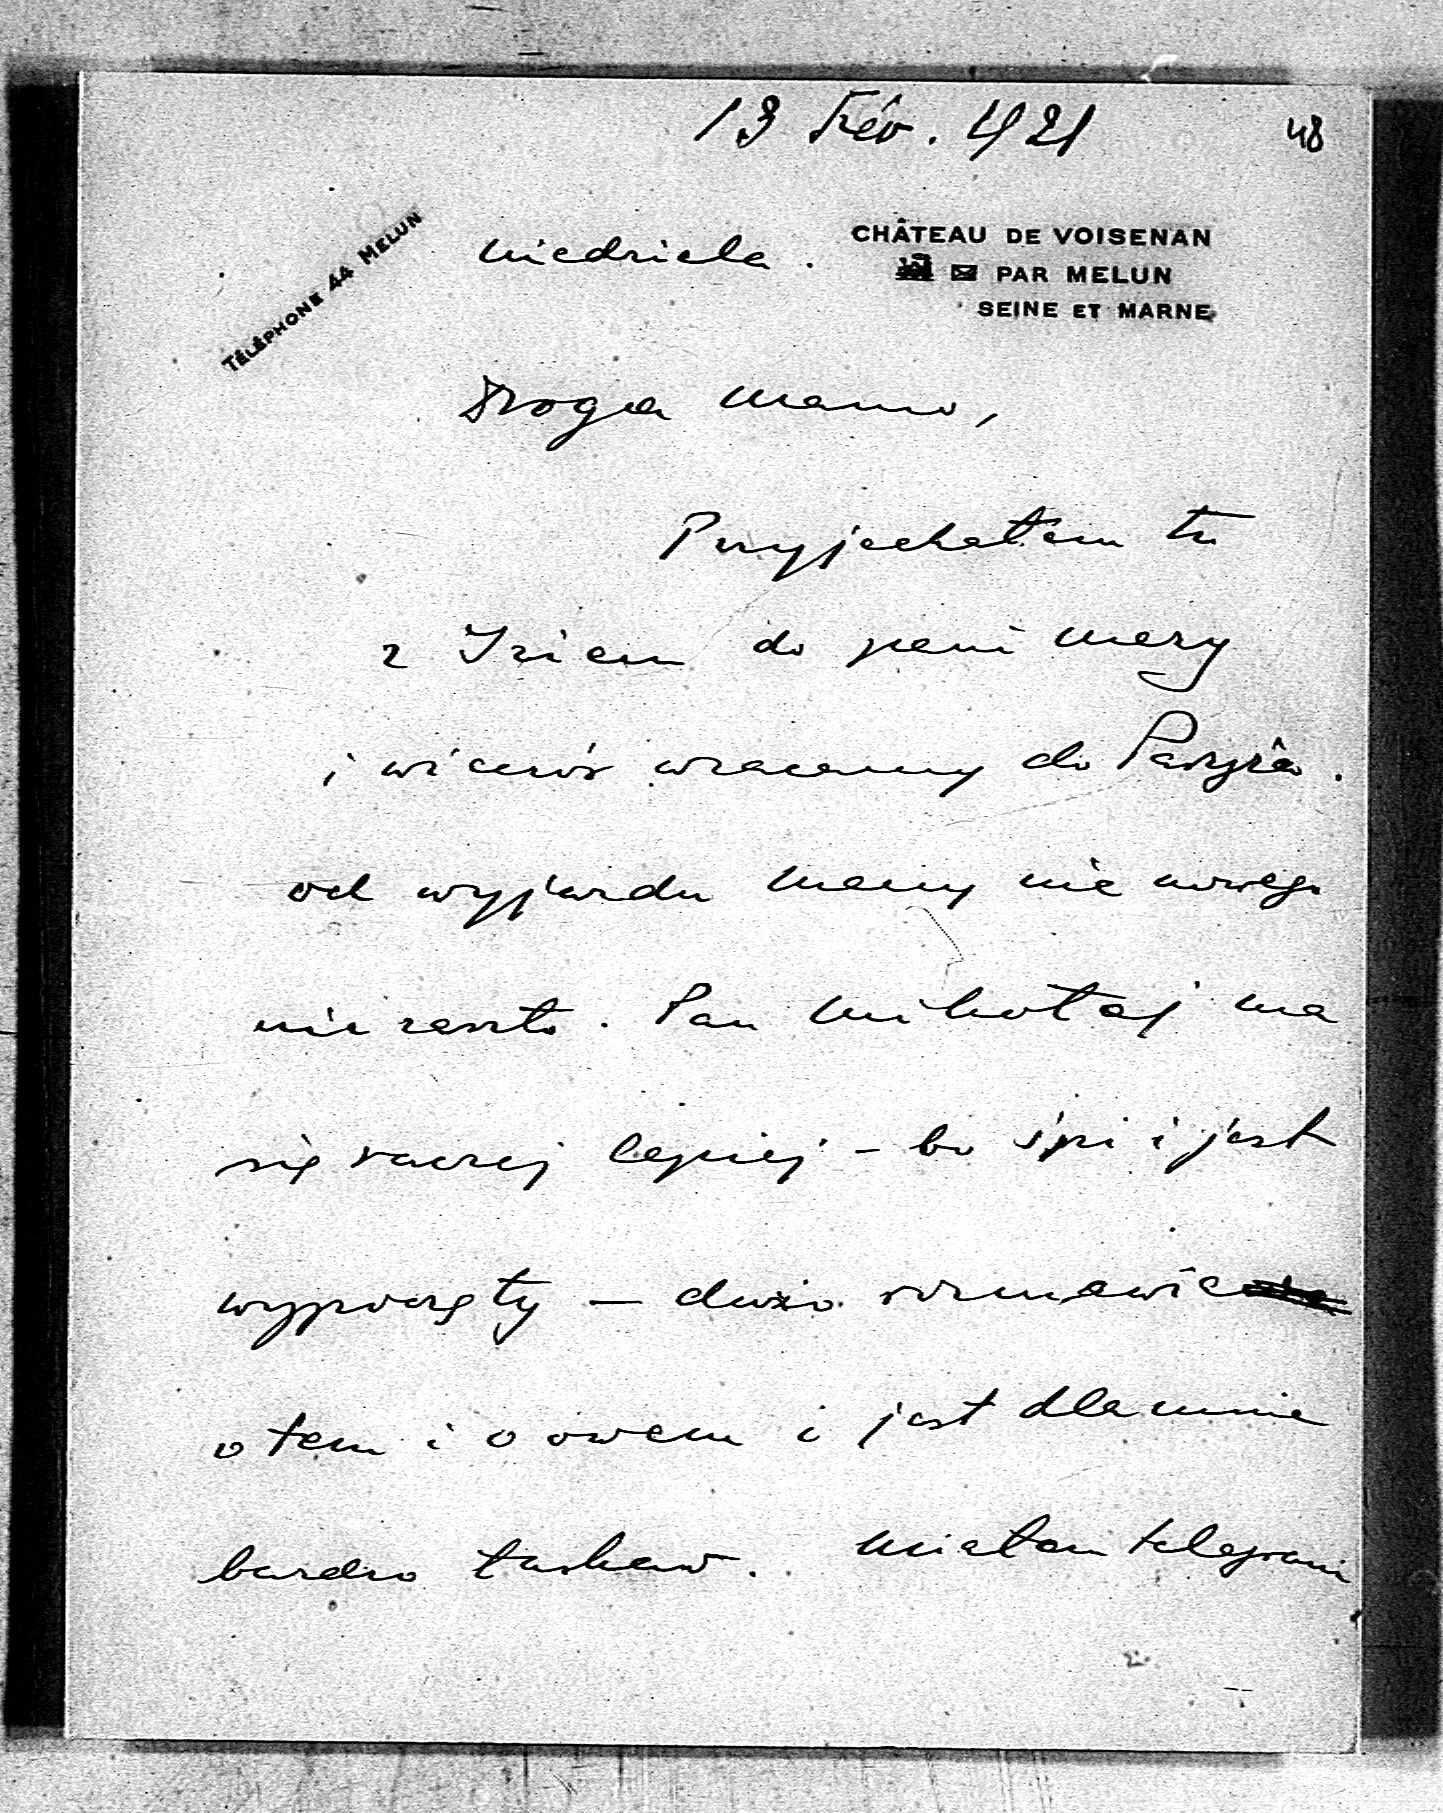 13 Fév. 1921
48
TÉLÉPHONE 44 MELUN
niedziela.
CHÂTEAU DE VOISENAN
PAR MELUN
SEINE ET MARNE
Droga Mamo,
Przyjechałem tu
z Iziem do pani Mery
i wieczór wracamy do Paryża.
od wyjazdu Mamy nic nowego
nie zaszło. Pan Mikołaj ma
się raczej lepiej – bo śpi i jest
wypoczęty – dużo rozmawia
o tem i o owem i jest dla mnie
bardzo łaskaw. Miałem telegram